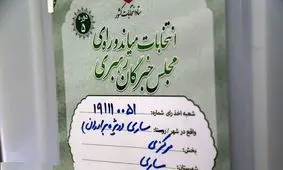 ستاد انتخابات کشور
انتخابات میاندوره‌ای
مجلس خبرگان رهبری
شعبه اخذ رای شماره: ۱۹۱۱۱۰۰۵۱
واقع در شهر/روستا: ساری (ویژه برادران)
بخش: مرکزی
شهرستان: ساری